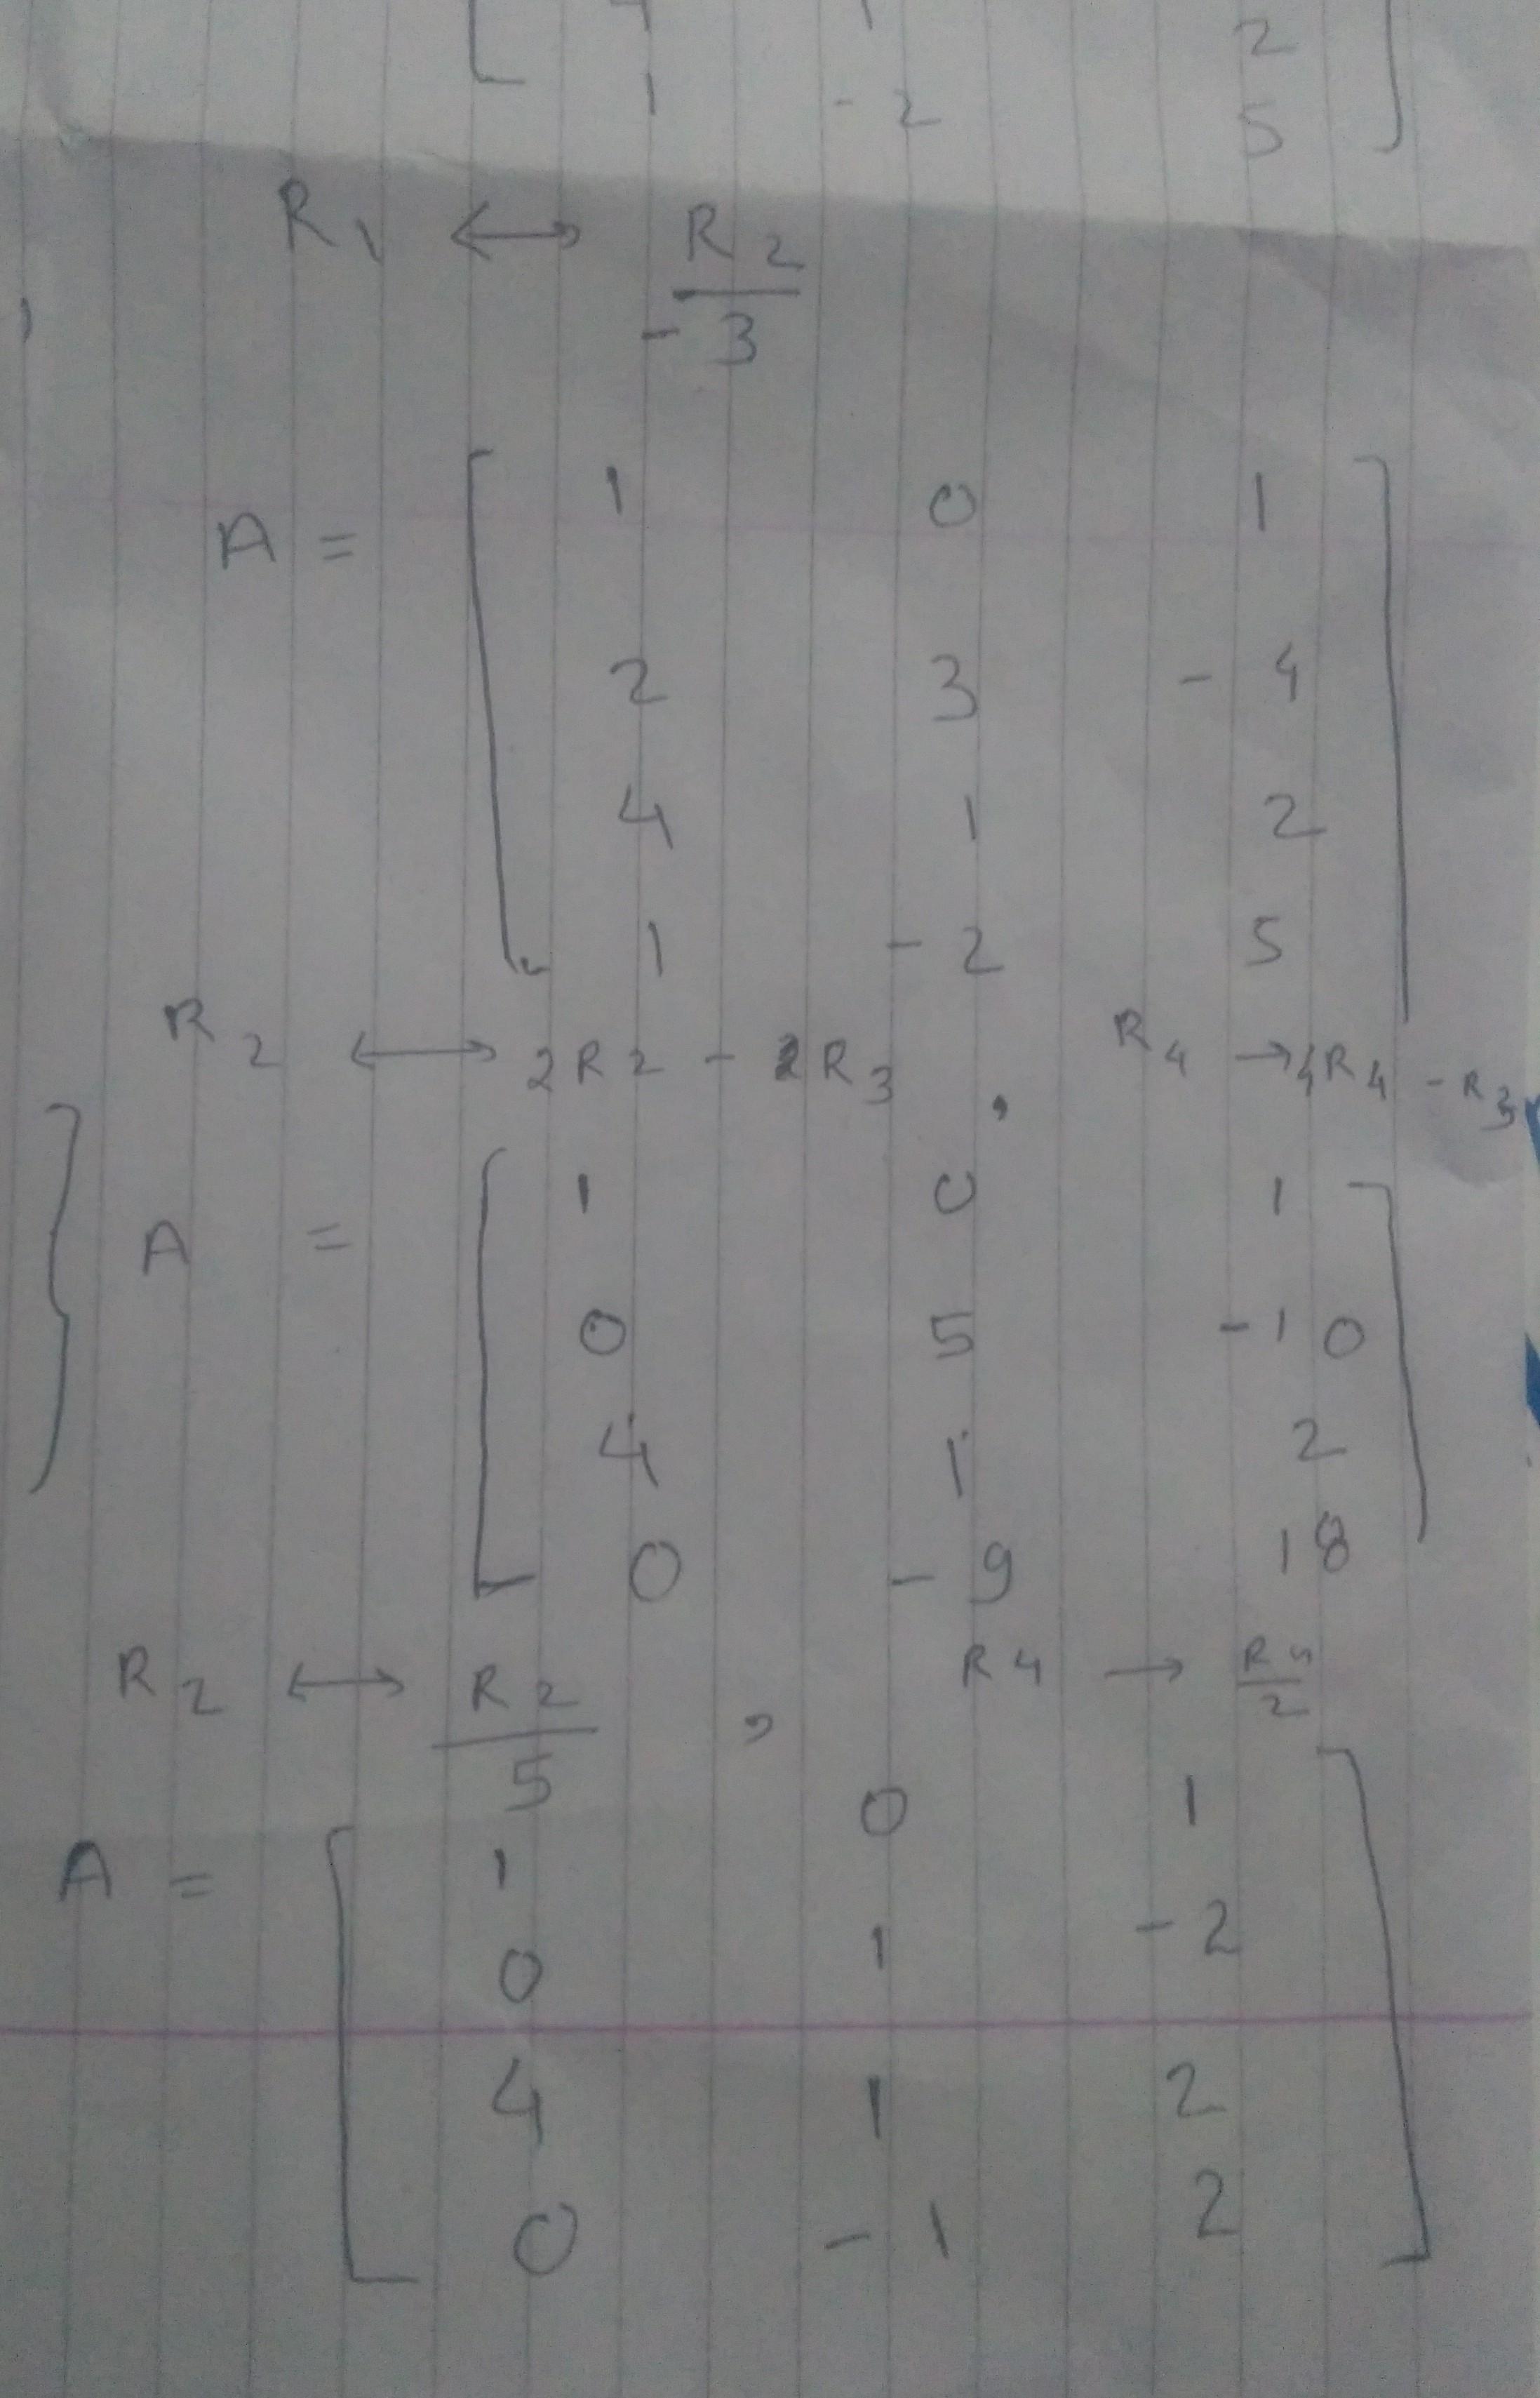 2
1 - 2 5
R1 ↔ R2
- 3
1 0 1
A =
2 3 - 4
4 1 2
1 - 2 5
R2 ↔ 2R2 - 2R3 , R4 → 4R4 - R3
1 0 1
A =
0 5 -10
4 1 2
0 - 9 18
R2 ↔ R2/5 , R4 → R4/2
0 1
A = 1
0 1 - 2
4 1 2
0 - 1 2